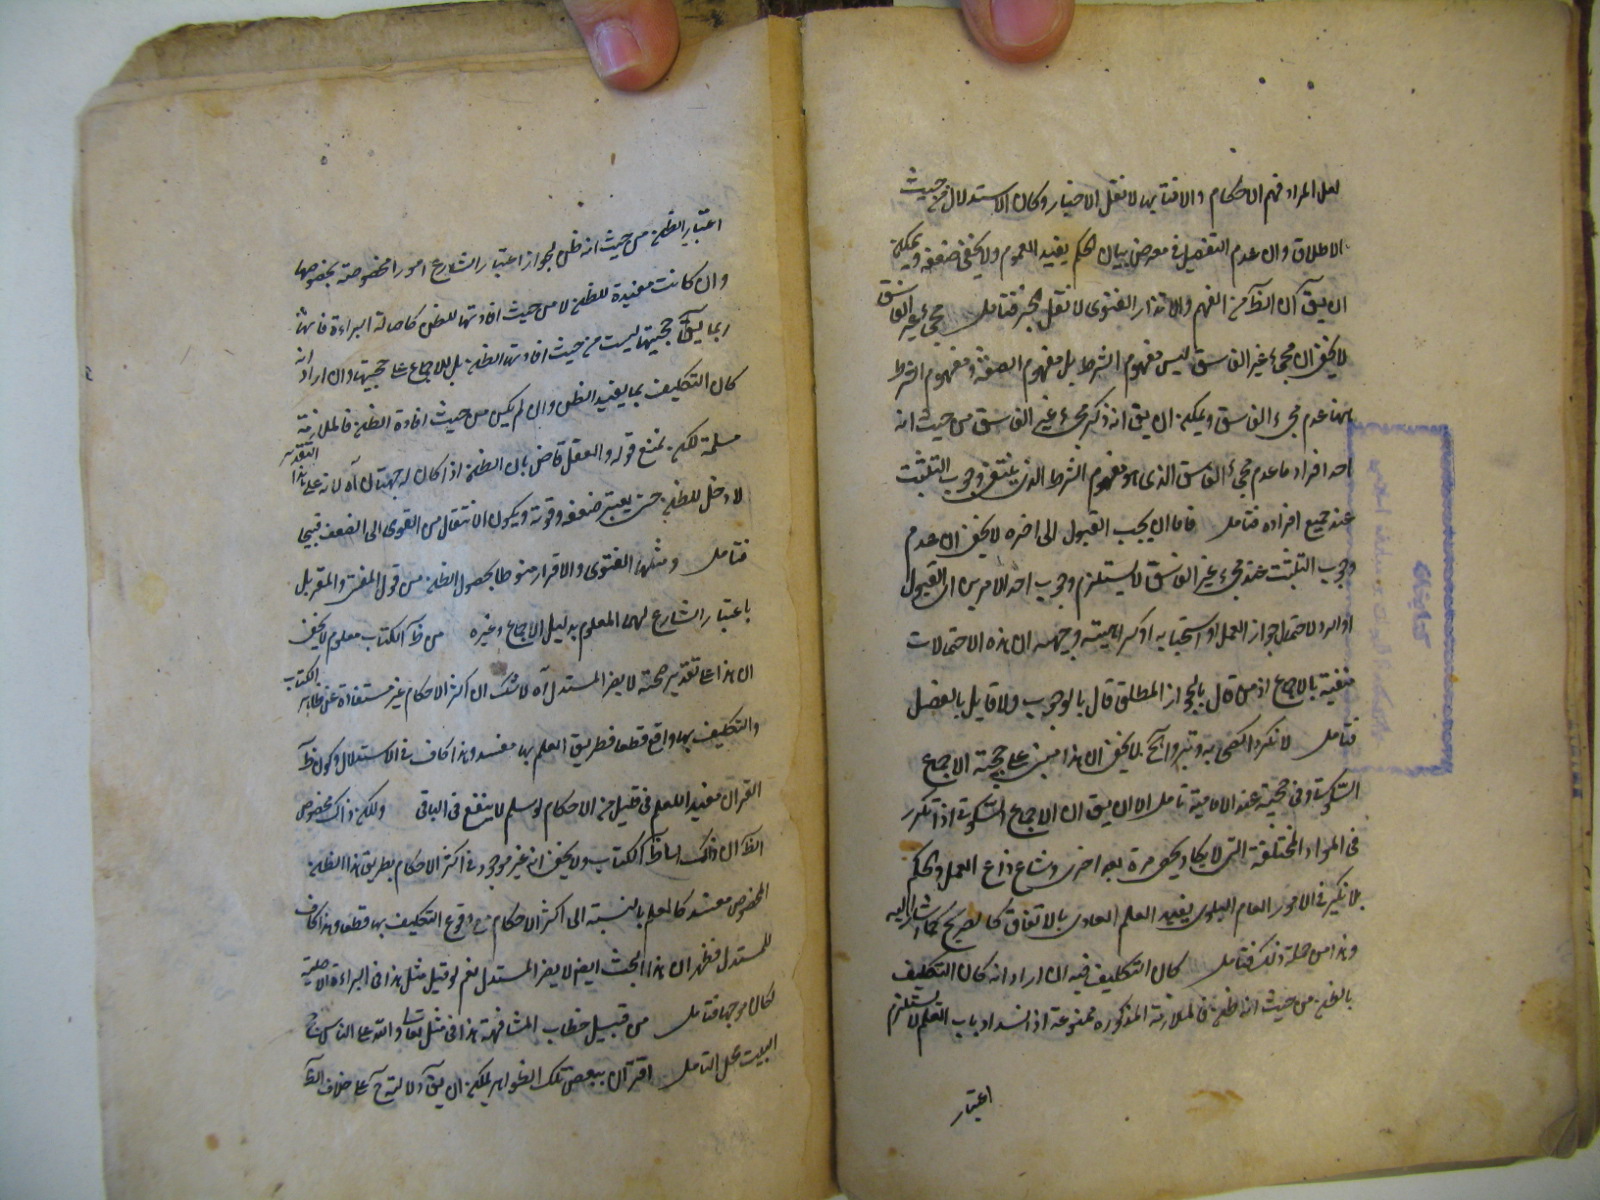 لعل المراد فهم الاحكام والافتا بها لا نقل الاخبار وكان الاستدلال من حيث
الاطلاق وان عدم التفصيل فى معرض بيان الحكم يفيد العموم ولا يخفى ضعفه ويمكن
ان يق آن الظآ من الفهم والانذار الفتوى لا نقل الخبر فتامل مجئ غير الفاسق
لا يخفى ان مجئ غير الفاسق ليس مفهوم الشرط بل مفهوم الصفة ومفهوم الشرط
ههنا عدم مجئ الفاسق ويمكن ان يق انه ذكر مجئ غير الفاسق من حيث انه
احد افراد ما عدم مجئ الفاسق الذى هو مفهوم الشرط الذى ينتفى وجوب التثبت
عند جميع افراده فتامل فاما ان يجب القبول الى اخره لا يخفى ان عدم
وجوب التثبت عند مجئ غير الفاسق لا يستلزم وجوب احد الامرين اى القبول
او الرد لاحتمال جواز العمل او استحبابه او كراهيته وجهه ان هذه الاحتمالات
منفية بالاجماع اذ من قال بالجواز المطلق قال بالوجوب ولا قايل بالفصل
فتامل لا يخفى ان هذا مبنى على حجية الاجماع
السكوتى وفى حجيته عند الامامية تامل الا ان يق ان الاجماع السكوتى اذا تكرر
فى المواد المختلفة التى لا يكاد يحصى مرة بعد اخرى وشاع وذاع العمل والحكم
بلا نكير فى الامور العام البلوى يفيد العلم العادى بالاتفاق كالصريح كما اشار اليه
وهذا من جملة ذلك فتامل كان التكليف فيه ان اراد انه كان التكليف
بالظن من حيث انه ظن فالملازمة المذكورة ممنوعة اذ انسداد باب العلم لا يستلزم
اعتبار
اعتبار الظن من حيث انه ظن لجواز اعتبار الشارع امورا مخصوصة بخصوصها
وان كانت مفيدة للظن لا من حيث افادتها للظن كاصالة البراءة فانها
ربما يق حجيتها ليست من حيث افادتها الظن بل للاجماع على حجيتها وان اراد انه
كان التكليف بما يفيد الظن وان لم يكن من حيث افادة الظن فالملازمة
مسلمة لكن نمنع قوله والعقل قاض بان الظن اذا كان له جهتان آه لانه على هذا التقدير
لا دخل للظن حتى يعتبر ضعفه وقوته ويكون الانتقال من القوى الى الضعف قبيحا
فتامل ومثلها الفتوى والاقرار منوطا بحصول الظن من قول المفتى والمقر بل
باعتبار الشارع لهما المعلوم بدليل الاجماع وغيره من ظآ الكتاب معلوم لا يخفى
ان هذا على تقدير صحته لا يضر المستدل آه لا شك ان اكثر الاحكام غير مستفادة عن ظاهر الكتاب
والتكليف بها واقع قطعا فطريق العلم بها منسد وهذا كاف فى الاستدلال وكون ظآ
القران مفيد اللعلم فى قليل من الاحكام لو سلم لا ينفع فى الباقى ولكن ذاك مخصوص
الظآ ان ذاك اشارة الكتاب ولا يخفى انه غير موجود فى اكثر الاحكام بطريق هذا الظن
المخصوص منسد كالعلم بالنسبة الى اكثر الاحكام مع وقوع التكليف بها قطعا وهذا كاف
للمستدل فظهر ان هذا البحث ايضا لا يضر المستدل نعم لو قيل مثل هذا فى البراءة الاصلية
لكان موجها فتامل من قبيل خطاب المشافهة هذا فى مثل ولله على الناس حج
البيت محل التامل اقتران ببعض تلك الظواهر يمكن ان يق دلالته ح على خلاف الظآ